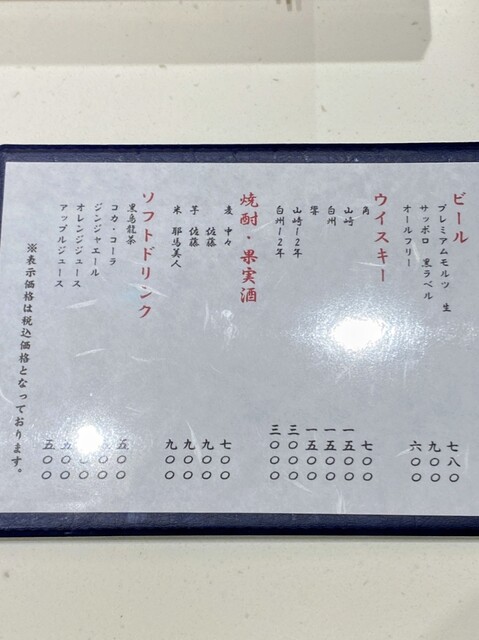 ビール
プレミアムモルツ 生 七八〇
サッポロ 黒ラベル 九〇〇
オールフリー 六〇〇
ウイスキー
角 七〇〇
山崎 一五〇〇
白州 一五〇〇
響 一五〇〇
山崎12年 三〇〇〇
白州12年 三〇〇〇
焼酎・果実酒
麦 中々 七〇〇
佐藤 九〇〇
芋 佐藤 九〇〇
米 耶馬美人 九〇〇
ソフトドリンク
黒烏龍茶 五〇〇
コカ・コーラ
ジンジャエール
オレンジジュース
アップルジュース 五〇〇
※表示価格は税込価格となっております。